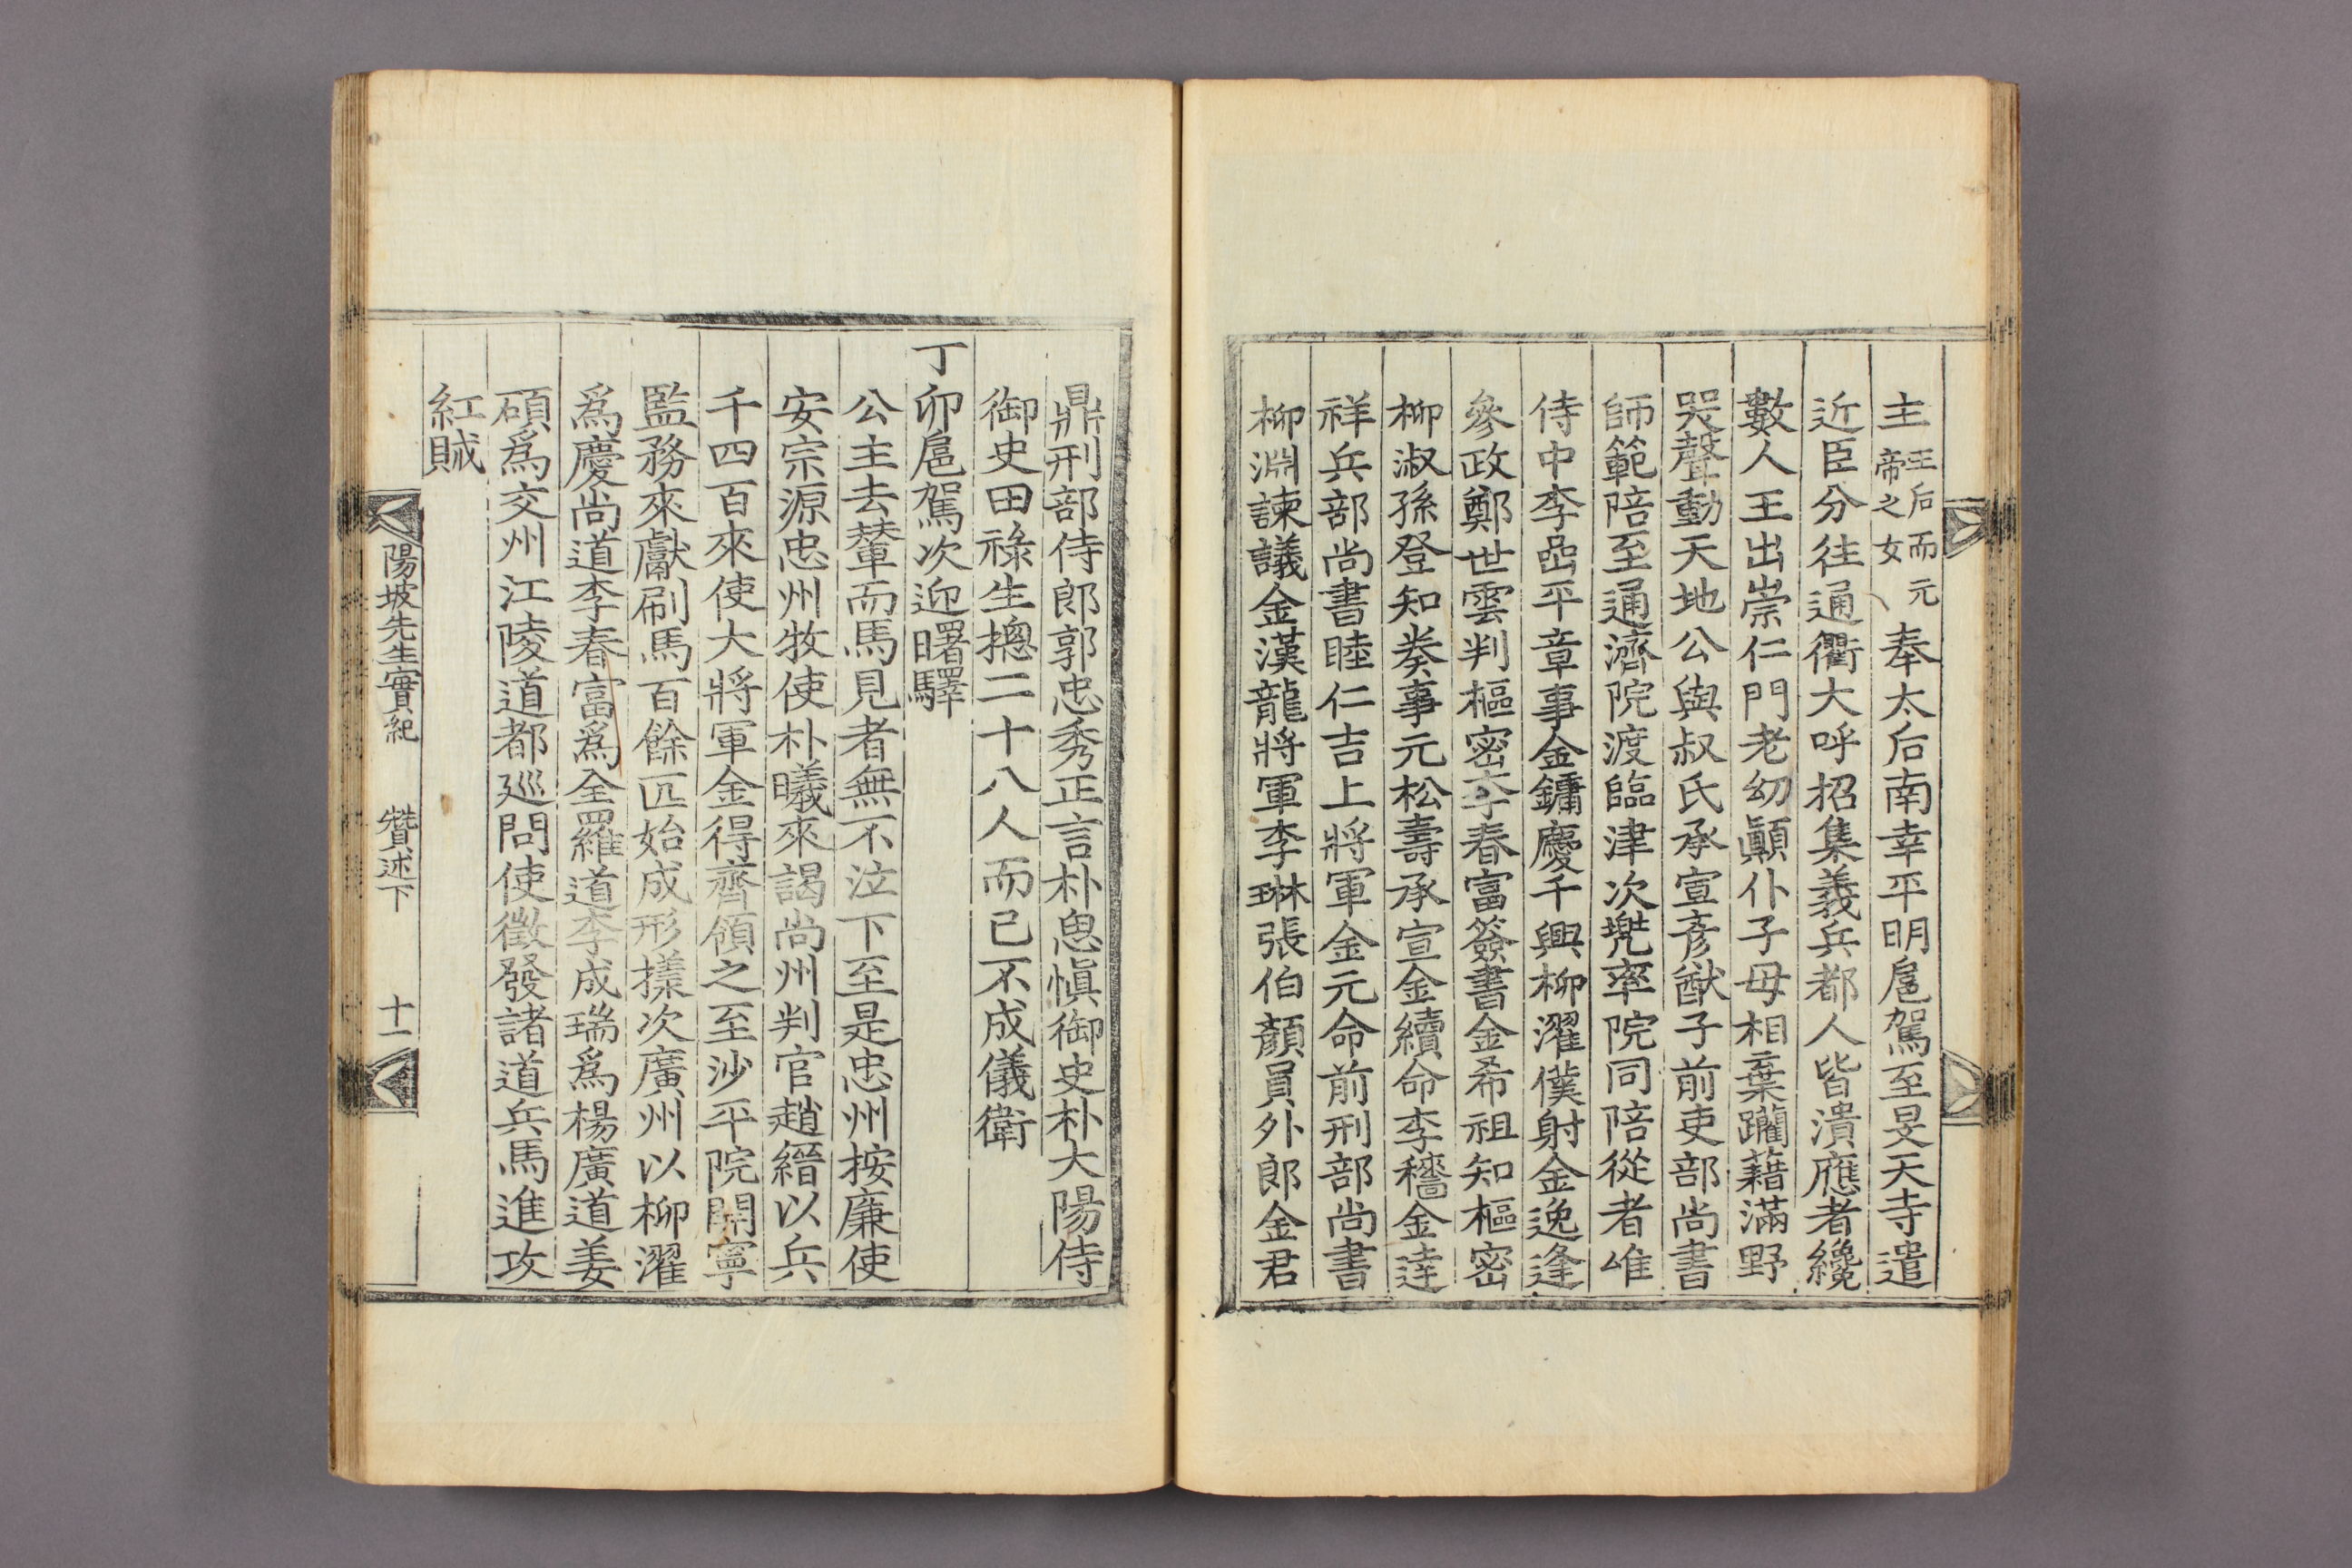 主王后而元帝之女奉太后南幸平明扈駕至旻天寺遣
近臣分往通衢大呼招集義兵都人皆潰應者纔
數人王出崇仁門老幼顚仆子母相棄躪藉滿野
哭聲動天地公與叔氏承宣彥猷子前吏部尚書
師範陪至通濟院渡臨津次兠率院同陪從者唯
侍中李嵒平章事金鏞慶千興柳濯僕射金逸逢
參政鄭世雲判樞密李春富簽書金希祖知樞密
柳淑孫登知奏事元松壽承宣金續命李穡金達
祥兵部尚書睦仁吉上將軍金元命前刑部尚書
柳淵諫議金漢龍將軍李琳張伯顏員外郎金君
鼎刑部侍郎郭忠秀正言朴思愼御史朴大陽侍
御史田祿生摠二十八人而已不成儀衛
丁卯扈駕次迎曙驛
公主去輦而馬見者無不泣下至是忠州按廉使
安宗源忠州牧使朴曦來謁尚州判官趙縉以兵
千四百來使大將軍金得齊領之至沙平院開寧
監務來獻刷馬百餘匹始成形㨾次廣州以柳濯
爲慶尚道李春富爲全羅道李成瑞爲楊廣道姜
碩爲交州江陵道都廵問使徵發諸道兵馬進攻
紅賊
陽坡先生實紀 贊述下 十二